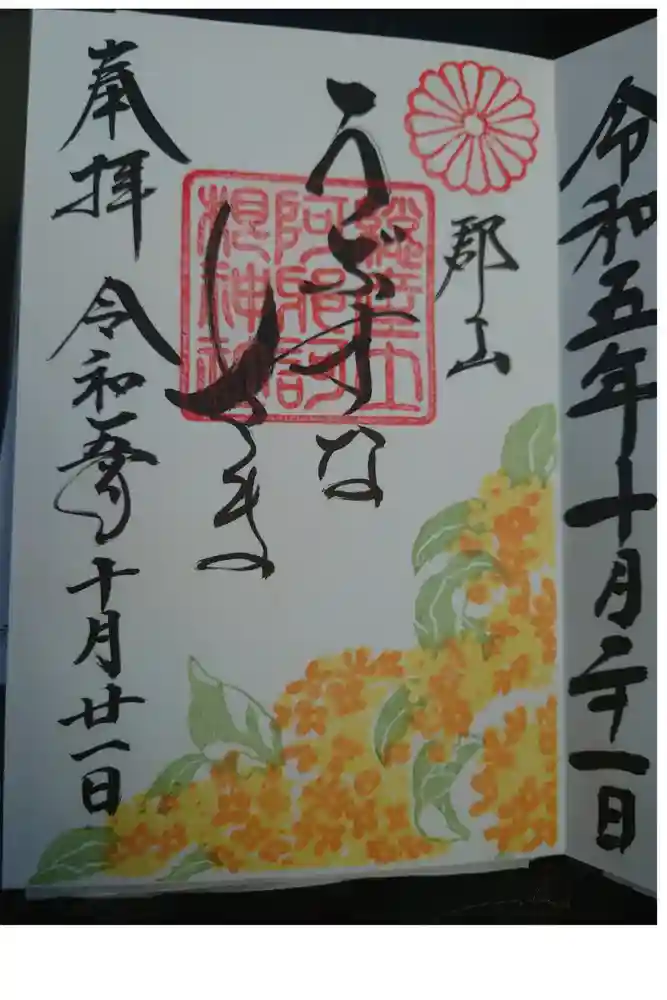 令和五年十月二十一日
郡山
うぶすな
総産土
阿邪訶
根神社
奉拝 令和五年十月廿一日